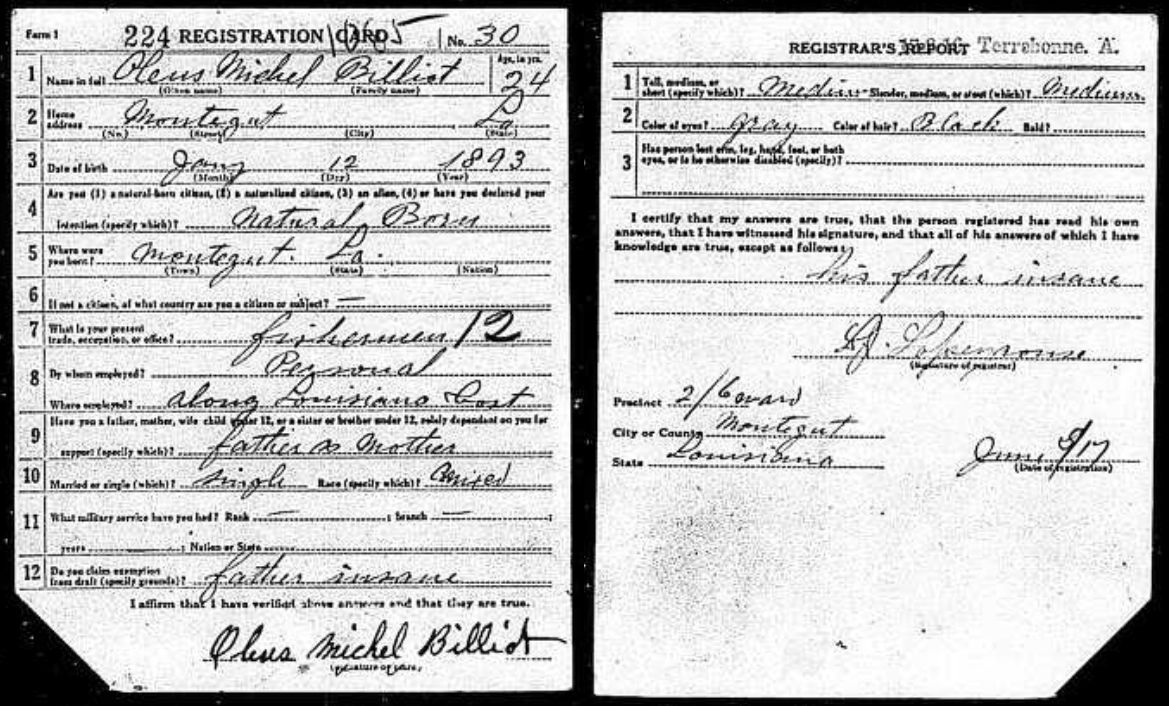 Form 1
224 REGISTRATION CARD No. 30
1 Name in full Oleus Michel Billiot Age, in yrs. 24
(Given name) (Family name)
2 Home address Montegut La
(No.) (Street) (City) (State)
3 Date of birth Jany 12 1893
(Month) (Day) (Year)
4 Are you (1) a natural-born citizen, (2) a naturalized citizen, (3) an alien, (4) or have you declared your
intention (specify which)? Natural Born
5 Where were you born? Montegut. La.
(Town) (State) (Nation)
6 If not a citizen, of what country are you a citizen or subject? —
7 What is your present trade, occupation, or office? fishermen 12
8 By whom employed? Personal
Where employed? along Louisiana Cost
9 Have you a father, mother, wife child under 12, or a sister or brother under 12, solely dependent on you for
support (specify which)? father Mother
10 Married or single (which)? Single Race (specify which)? Mixed
11 What military service have you had? Rank — ; branch — ;
years ; Nation or State
12 Do you claim exemption from draft (specify grounds)? father insane
I affirm that I have verified above answers and that they are true.
Oleus Michel Billiot
REGISTRAR'S REPORT Terrebonne. A.
1 Tall, medium, or short (specify which)? Medium Slender, medium, or stout (which)? Medium
2 Color of eyes? Gray Color of hair? Black Bald?
3 Has person lost arm, leg, hand, foot, or both
eyes, or is he otherwise disabled (specify)?
I certify that my answers are true, that the person registered has read his own
answers, that I have witnessed his signature, and that all of his answers of which I have
knowledge are true, except as follows:
his father insane
(Signature of registrar)
Precinct 2/6 ward
City or County Montegut
State Louisiana
June 5/17
(Date of registration)